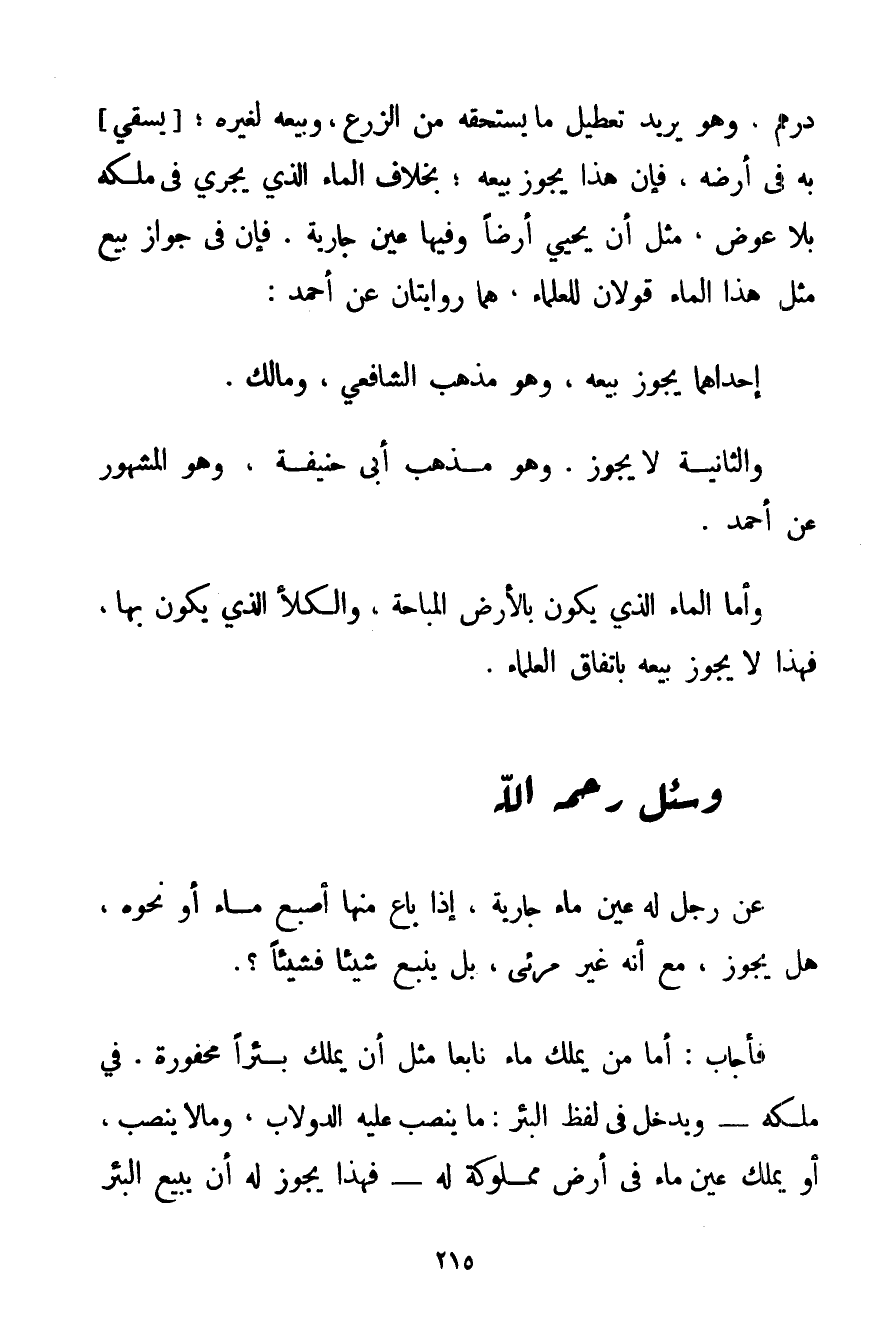 درهم . وهو يريد تعطيل ما يستحقه من الزرع ، وبيعه لغيره ؛ [ يسقي ]
به فى أرضه ، فإن هذا يجوز بيعه ؛ بخلاف الماء الذي يجري فى ملكه
بلا عوض ، مثل أن يحيي أرضاً وفيها عين جارية . فإن فى جواز بيع
مثل هذا الماء قولان للعلماء ، هما روايتان عن أحمد :
إحداهما يجوز بيعه ، وهو مذهب الشافعي ، ومالك .
والثانية لا يجوز . وهو مذهب أبى حنيفة ، وهو المشهور
عن أحمد .
وأما الماء الذي يكون بالأرض المباحة ، والكلأ الذي يكون بها ،
فهذا لا يجوز بيعه باتفاق العلماء .
وسئل رحمه اللّه
عن رجل له عين ماء جارية ، إذا باع منها أصبع ماء أو نحوه ،
هل يجوز ، مع أنه غير مرئى ، بل ينبع شيئا فشيئاً ؟ .
فأجاب : أما من يملك ماء نابعا مثل أن يملك بئراً محفورة . في
ملكه — ويدخل فى لفظ البئر : ما ينصب عليه الدولاب ، ومالا ينصب ،
أو يملك عين ماء فى أرض مملوكة له — فهذا يجوز له أن يبيع البئر
٢١٥